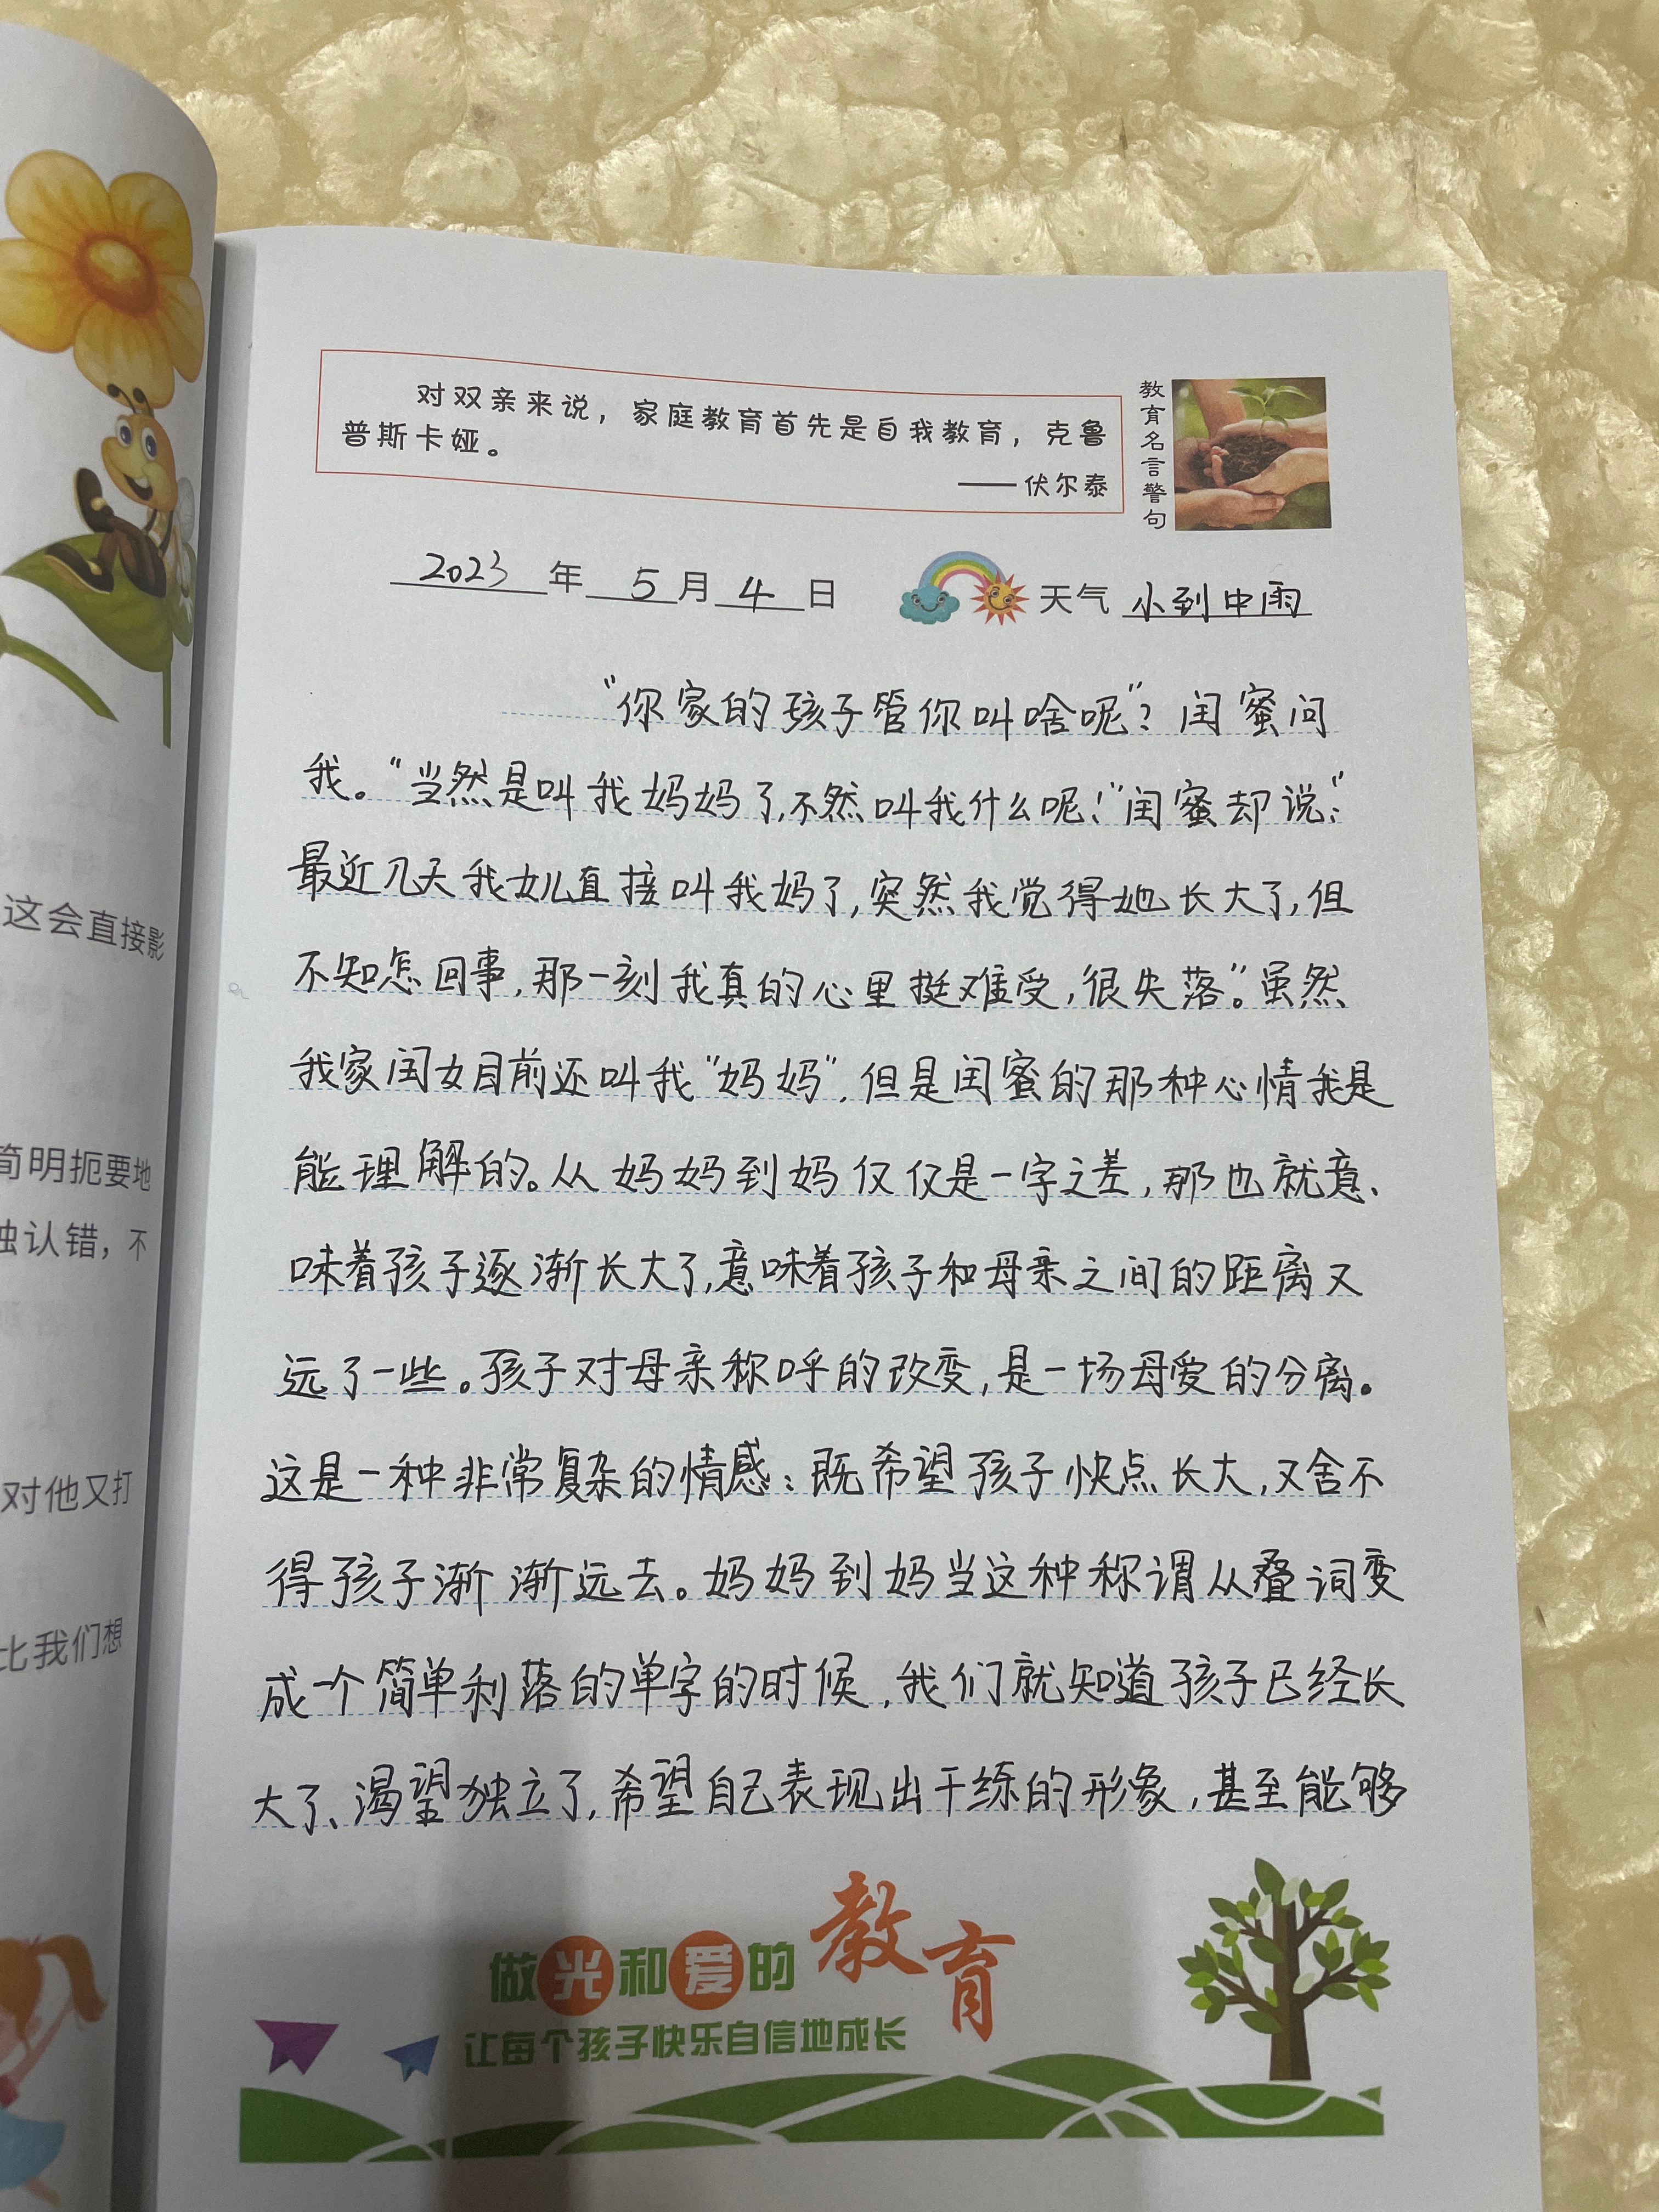 这会直接影
简明扼要地
独认错，不
对他又打
比我们想
对双亲来说，家庭教育首先是自我教育，克鲁
普斯卡娅。
——伏尔泰
教育名言警句
2023年5月4日
天气 小到中雨
“你家的孩子管你叫啥呢”？闺蜜问
我。“当然是叫我妈妈了,不然叫我什么呢！”闺蜜却说：“
最近几天我女儿直接叫我妈了,突然我觉得她长大了,但
不知怎回事,那一刻我真的心里挺难受,很失落”。虽然
我家闺女目前还叫我“妈妈”,但是闺蜜的那种心情我是
能理解的。从妈妈到妈仅仅是一字之差,那也就意、
味着孩子逐渐长大了,意味着孩子和母亲之间的距离又
远了一些。孩子对母亲称呼的改变,是一场母爱的分离。
这是一种非常复杂的情感：既希望孩子快点长大,又舍不
得孩子渐渐远去。妈妈到妈当这种称谓从叠词变
成一个简单利落的单字的时候,我们就知道孩子已经长
大了、渴望独立了,希望自己表现出干练的形象,甚至能够
做光和爱的教育
让每个孩子快乐自信地成长